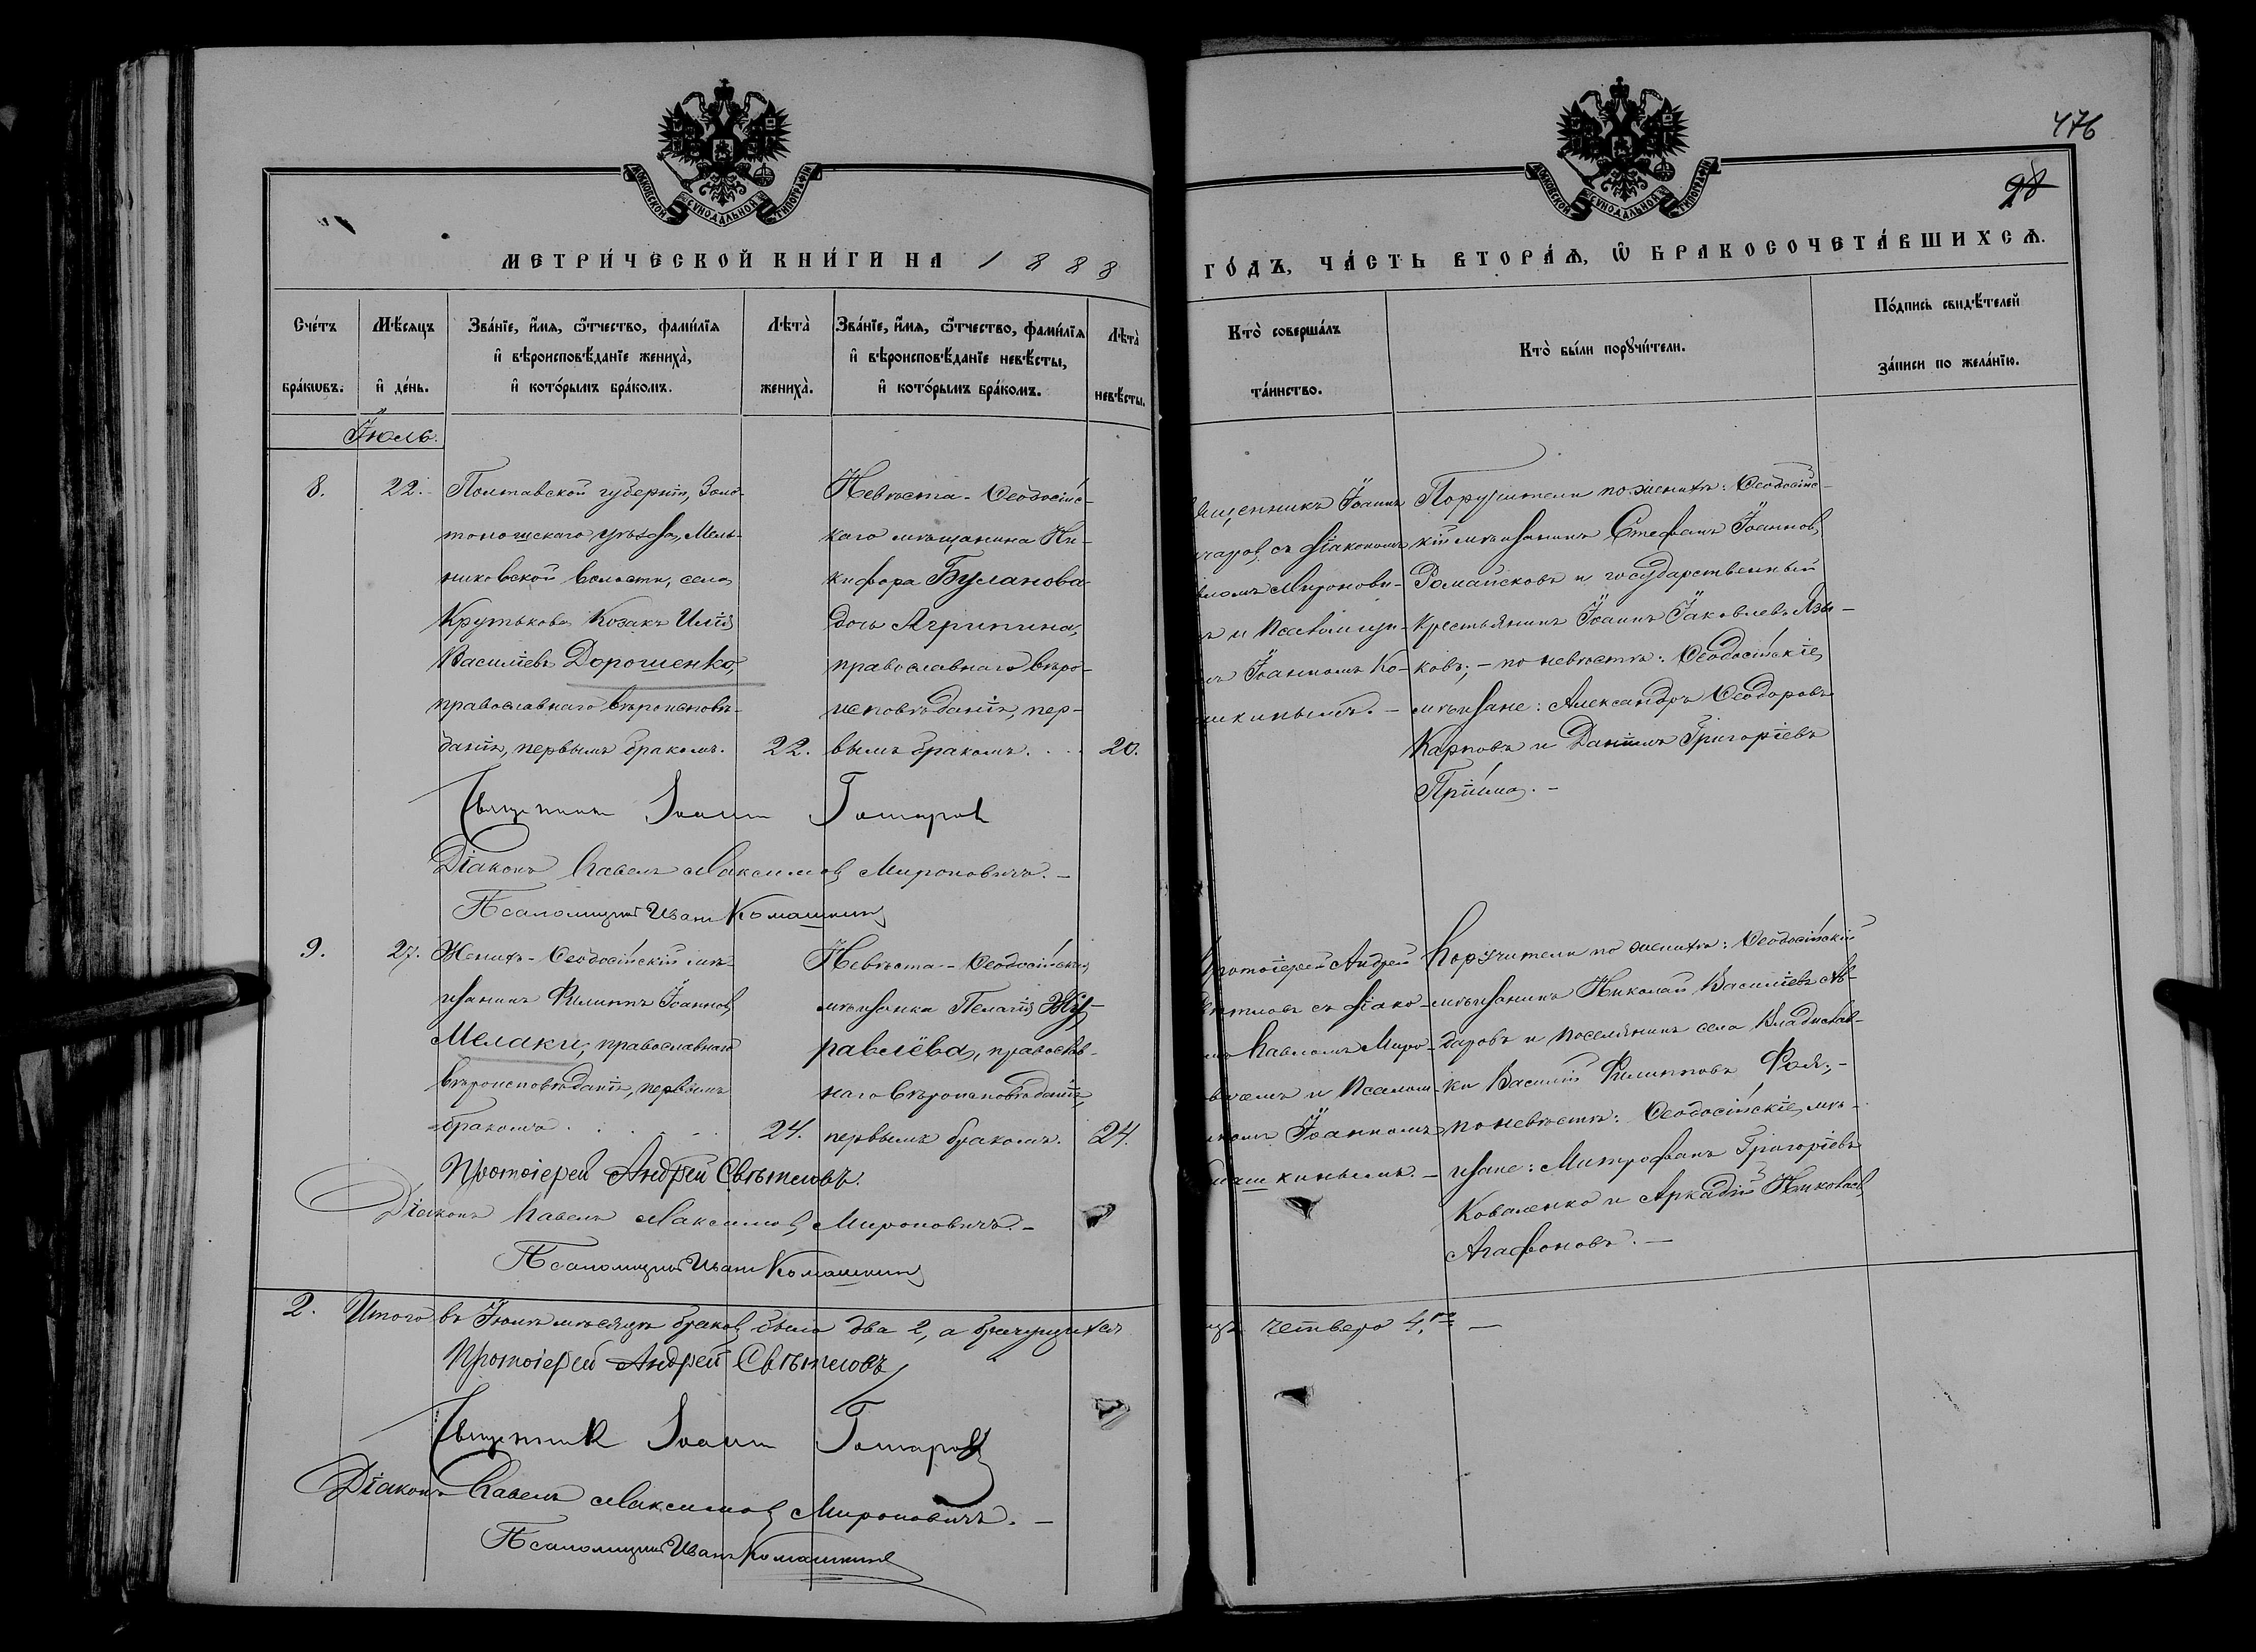 476
98
МОСКОВСКОЙ СѴНОДАЛЬНОЙ ТИПОГРАФІИ
МОСКОВСКОЙ СѴНОДАЛЬНОЙ ТИПОГРАФІИ
МЕТРИ́ЧЕСКОЙ КНИ́ГИ НА 1888
ГО́ДЪ, ЧА́СТЬ ВТОРА́Ѧ, Ѽ БРАКОСОЧЕТА́ВШИХСѦ.
Сче́тъ бра́кѡвъ.
Мѣ́сяцъ и҆ де́нь.
Зва́нїе, и҆́мя, ѻ҆́тчество, фами́лїя
и҆ вѣроисповѣ́данїе жениха̀,
и҆ кото́рымъ бра́комъ.
Лѣта̀ жениха̀.
Зва́нїе, и҆́мя, ѻ҆́тчество, фами́лїя
и҆ вѣроисповѣ́данїе невѣ́сты,
и҆ кото́рымъ бра́комъ.
Лѣта̀ невѣ́сты.
Кто̀ соверша́лъ
та́инство.
Кто̀ бы́ли порꙋчи́тели.
По́дпись свидѣ́телей
за́писи по жела́нїю.
Іюль.
8.
22.
Полтавской губерніи, Золо-
тоношскаго уѣзда, Мель-
никовской волости, села
Крутькова Козакъ Илія
Василіевъ Дорошенко,
православнаго вѣроисповѣ-
данія, первымъ бракомъ.
22.
Невѣста - Ѳеодосійс-
каго мѣщанина Ни-
кифора Буланова
дочь Агрипина,
православнаго вѣро-
исповѣданія, пер-
вымъ бракомъ. . .
20.
ященникъ Іоаннъ
чаров, съ діакономъ
вломъ Миронови-
ъ и Псаломщи-
мъ Іоанномъ Ко-
шкинымъ. -
Поручители по женихѣ: Ѳеодосійс-
кій мѣщанинъ Стефанъ Іоаннов,
Романсковъ и государственный
крестьянинъ Іоаннъ Іаковлевъ Язы-
ковъ; - по невѣстѣ: Ѳеодосійскіе
мѣщане: Александръ Ѳеодоровъ
Карповъ и Даніилъ Григоріевъ
Пріима. -
Священник Іоанн Гончаров
Діаконъ Павелъ Максимов Мироновичъ. -
Псаломщикъ Иванъ Комашкинъ
9.
27.
Женихъ - Ѳеодосійскій мѣ-
щанинъ Филиппъ Іоаннов,
Мелаки, православнаго
вѣроисповѣданія, первымъ
бракомъ . . . . .
24.
Невѣста - Ѳеодосійская
мѣщанка Пелагія Жу-
равлёва, православ-
наго вѣроисповѣданія,
первымъ бракомъ.
24.
Протоіерей Андрей
Свѣтловъ съ діако-
мъ Павломъ Миро-
вичемъ и Псалом-
комъ Іоанномъ
машкинымъ. -
Поручители по женихѣ: Ѳеодосійскій
мѣщанинъ Николай Василіевъ Ав-
даровъ и поселянинъ села Владислав-
ки Василій Филипповъ Фоя; -
по невѣстѣ: Ѳеодосійскіе мѣ-
щане: Митрофанъ Григоріевъ
Коваленко и Аркадій Николаев,
Агафоновъ. -
Протоіерей Андрей Свѣтловъ.
Діаконъ Павелъ Максимов Мироновичъ. -
Псаломщикъ Иванъ Комашкинъ
2. Итого въ Іюлѣ мѣсяцѣ браков было два 2, а брачущихся
четверо 4. -
Протоіерей Андрей Свѣтловъ
Священник Іоанн Гончаров
Діаконъ Павелъ Максимов Мироновичъ. -
Псаломщикъ Иванъ Комашкинъ